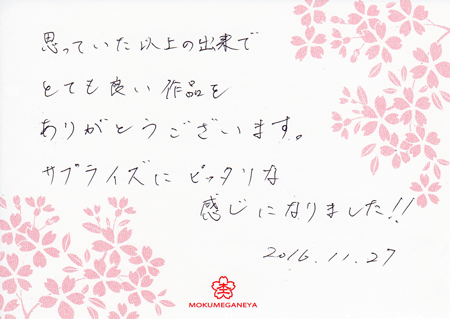 思っていた以上の出来で
とても良い作品を
ありがとうございます。
サプライズにピッタリな
感じになりました!!
2016.11.27
杢
MOKUMEGANEYA